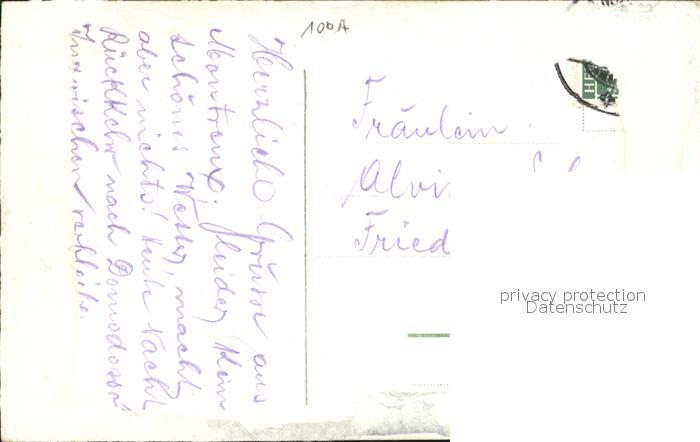 100A
Herzliche Grüsse aus
Montreux. Leider kein
schönes Wetter, macht
aber nichts! Heute Nacht
Rückkehr nach Domodossa
Inzwischen verbleibe
Fräulein
Alvi
Fried
HE
privacy protection
Datenschutz